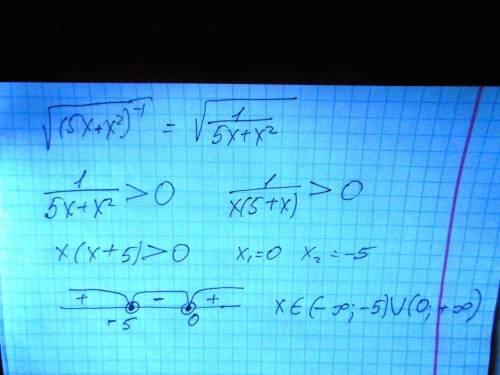 √((5x+x²)⁻¹) = √(1/(5x+x²))
1/(5x+x²) > 0 1/(x(5+x)) > 0
x(x+5)>0 x₁=0 x₂=-5
+ - + x∈(-∞;-5)∪(0;+∞)
-5 0